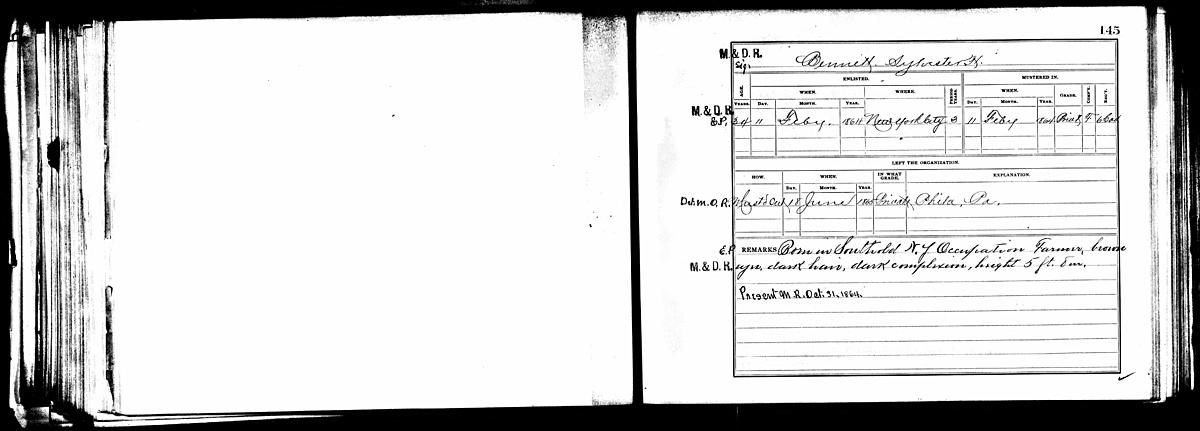 145
M. & D. R.
Sig. Bennett, Sylvester H.
ENLISTED. MUSTERED IN.
AGE. WHEN. WHERE. PERIOD YEARS. WHEN. GRADE. COMP'Y. REG'T.
YEARS. DAY. MONTH. YEAR. DAY. MONTH. YEAR.
M. & D. R.
&P. 34 11 Feby. 1864 New York City 3 11 Feby 1864 Privt. F. 6 Cav
LEFT THE ORGANIZATION.
HOW. WHEN. IN WHAT GRADE. EXPLANATION.
DAY. MONTH. YEAR.
D. & M. O. R. Must'd Out 18 June 1865 Private Phila, Pa.
E.P. REMARKS Born in Southold N.Y Occupation Farmer, brown
M. & D. R. eyes, dark hair, dark complexion, height 5 ft.
Present M. R. Oct. 31, 1864.